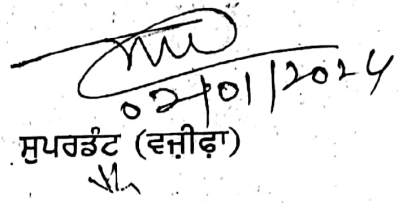 02/01/2024
ਸੁਪਰਡੰਟ (ਵਜ਼ੀਫ਼ਾ)